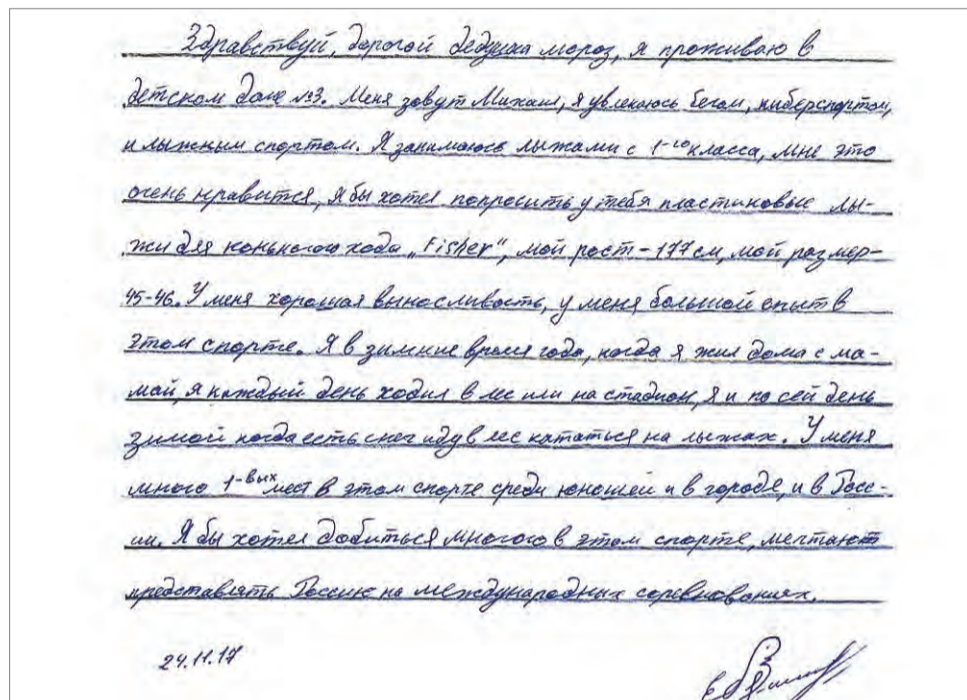 Здравствуй, дорогой дедушка мороз, я проживаю в
детском доме №3. Меня зовут Михаил, я увлекаюсь бегом, киберспортом,
и лыжным спортом. Я занимаюсь лыжами с 1-го класса, мне это
очень нравится, я бы хотел попросить у тебя пластиковые лы-
жи для конького хода „Fisher", мой рост - 177 см, мой размер-
45-46. У меня хорошая выносливость, у меня большой опыт в
этом спорте. Я в зимние время года, когда я жил дома с ма-
мой, я каждый день ходил в лес или на стадион, я и по сей день
зимой когда есть снег иду в лес кататься на лыжах. У меня
много 1-вых мест в этом спорте среди юношей и в городе, и в Росс-
ии. Я бы хотел добиться многого в этом спорте, мечтают
представлять Россию на международных соревнованиях.
24.11.17